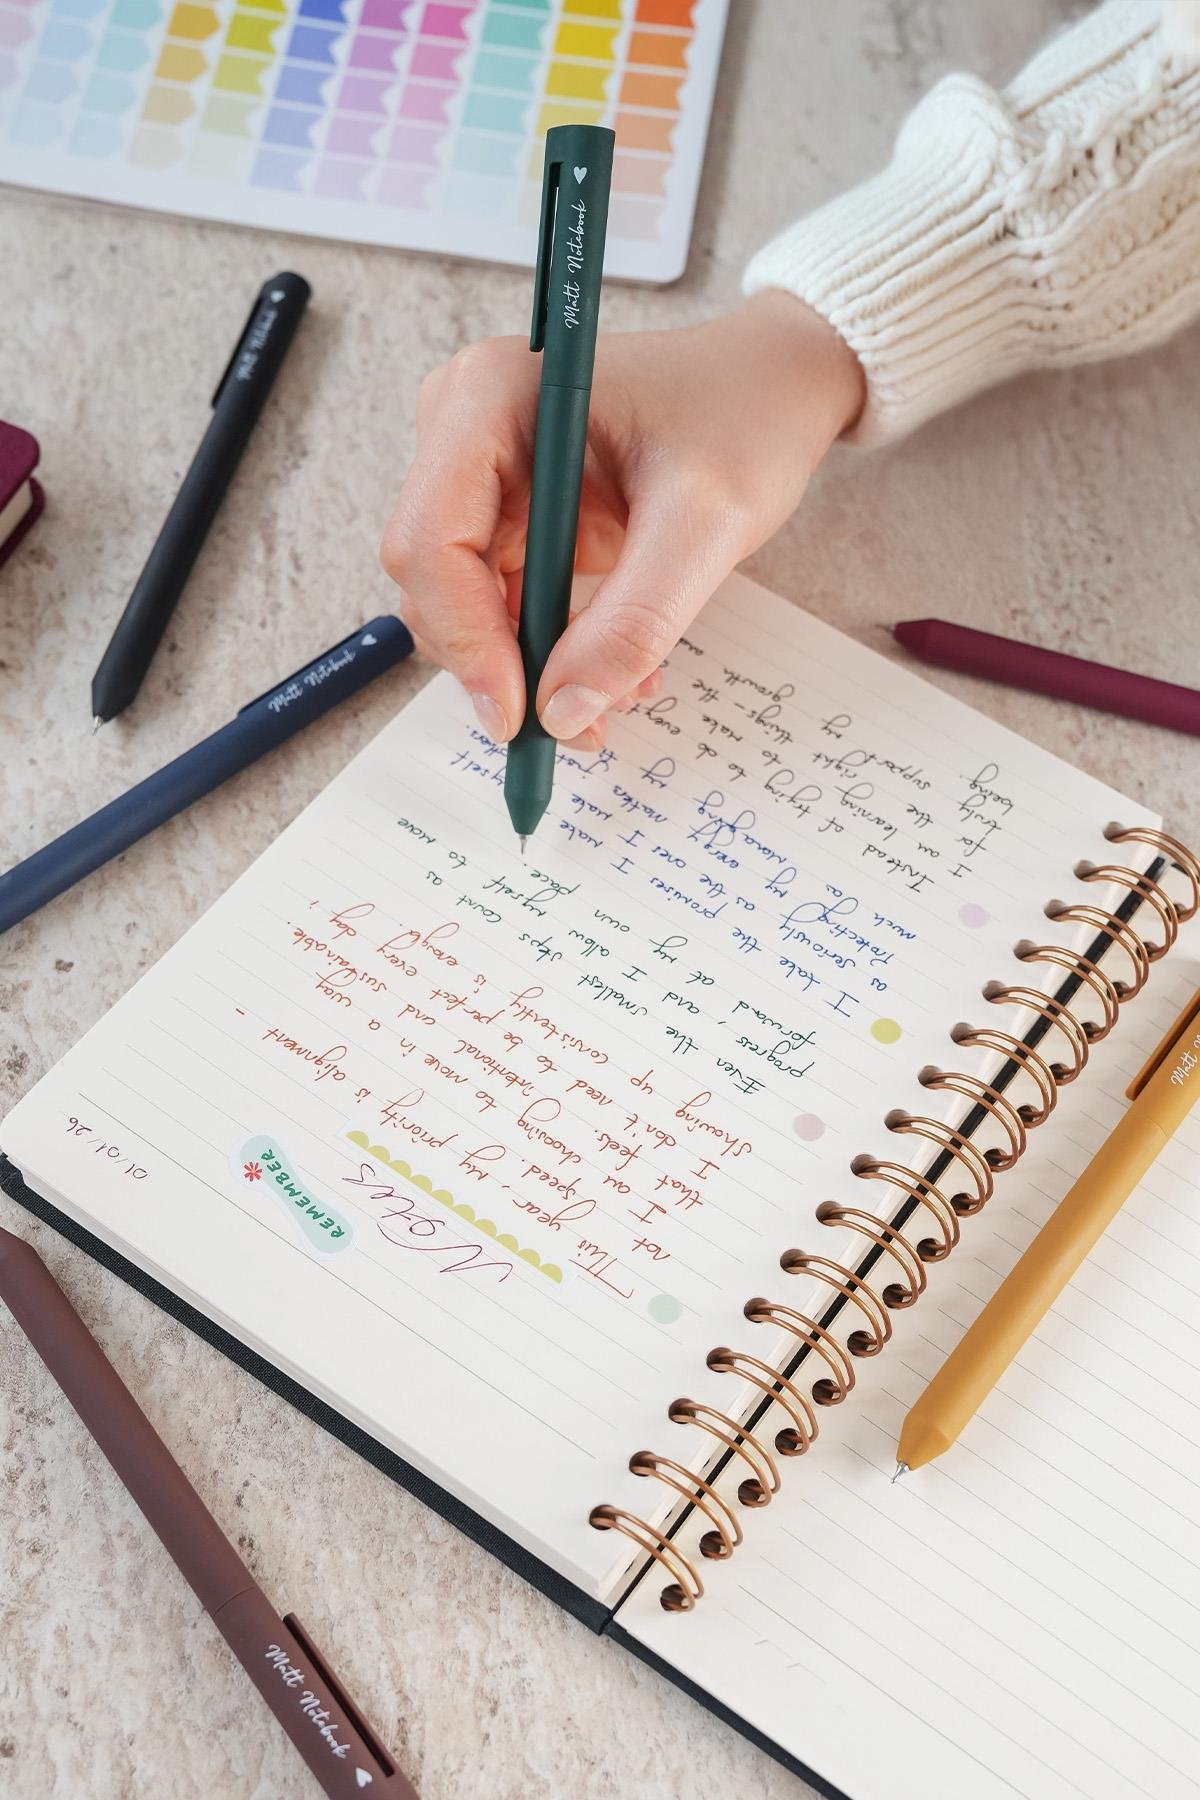 Matt Notebook
Matt Notebook
Matt Notebook
Matt Notebook
01/01/26
REMEMBER
Notes
This year, my priority is alignment -
not speed.
I am choosing to move in a way
that feels intentional and sustainable.
I don't need to be perfect every day;
showing up consistently is enough.
Even the smallest steps count as
progress, and I allow myself to move
forward at my own pace.
I take the promises I make myself
as seriously as the ones I make others.
Protecting my energy matters just
much as managing my
Instead of trying to do
I am learning to make
for the right things - the
truly support my growth and
being.